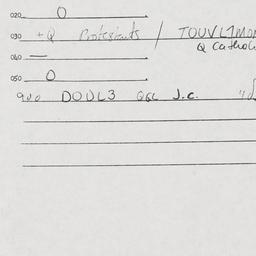 020 0
030 +Q Protestants / TOUVL1MO
Q Catholi
040 —
050 0
900 DOUL3 Q6L J.C.